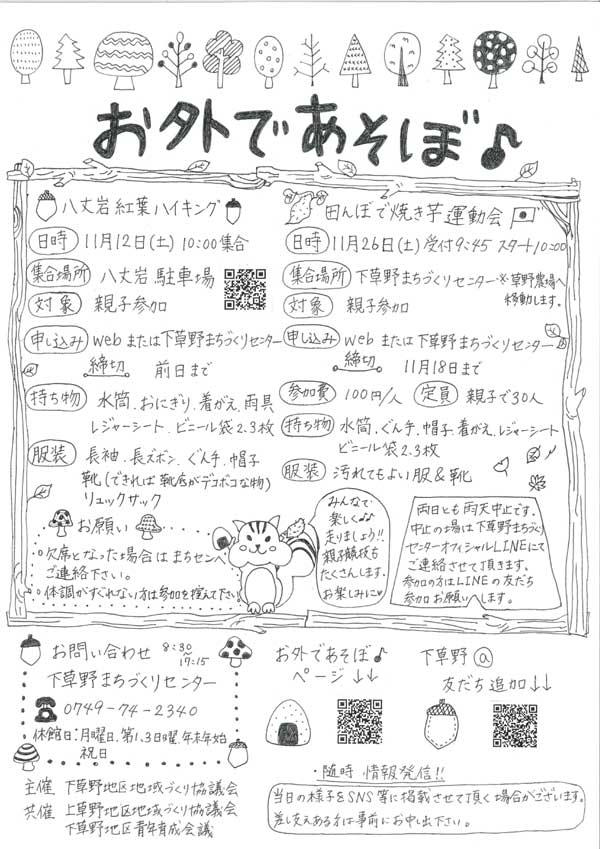 お外であそぼ♪
八丈岩紅葉ハイキング
日時 11月12日(土) 10:00集合
集合場所 八丈岩 駐車場
対象 親子参加
申し込み webまたは下草野まちづくりセンター
締切 前日まで
持ち物 水筒、おにぎり、着がえ、雨具
レジャーシート、ビニール袋2.3枚
服装 長袖、長ズボン、ぐん手、帽子
靴(できれば靴底がデコボコな物)
リュックサック
お願い
・欠席となった場合はまちセンへ
ご連絡下さい。
・体調がすぐれない方は参加を控えて下さい。
田んぼで焼き芋運動会
日時 11月26日(土) 受付9:45 スタート10:00
集合場所 下草野まちづくりセンター ※草野農場へ
移動します。
対象 親子参加
申し込み webまたは下草野まちづくりセンター
締切 11月18日まで
参加費 100円/人 定員 親子で30人
持ち物 水筒、ぐん手、帽子、着がえ、レジャーシート
ビニール袋2.3枚
服装 汚れてもよい服&靴
みんなで
楽しく♪♪
走りましょう!!
親子競技も
たくさんします。
お楽しみに♡
両日とも雨天中止です。
中止の場合は下草野まちづくり
センターオフィシャルLINEにて
ご連絡させて頂きます。
参加の方はLINEの友だち
参加お願いします。
お問い合わせ 8:30~17:15
下草野まちづくりセンター
0749-74-2340
休館日:月曜日、第1.3日曜、年末年始
祝日
主催 下草野地区地域づくり協議会
共催 上草野地区地域づくり協議会
下草野地区青年育成会議
お外であそぼ♪
ページ↓↓
下草野@
友だち追加↓↓
・随時 情報発信!!
当日の様子をSNS等に掲載させて頂く場合がございます。
差し支えある方は事前にお申し出下さい。